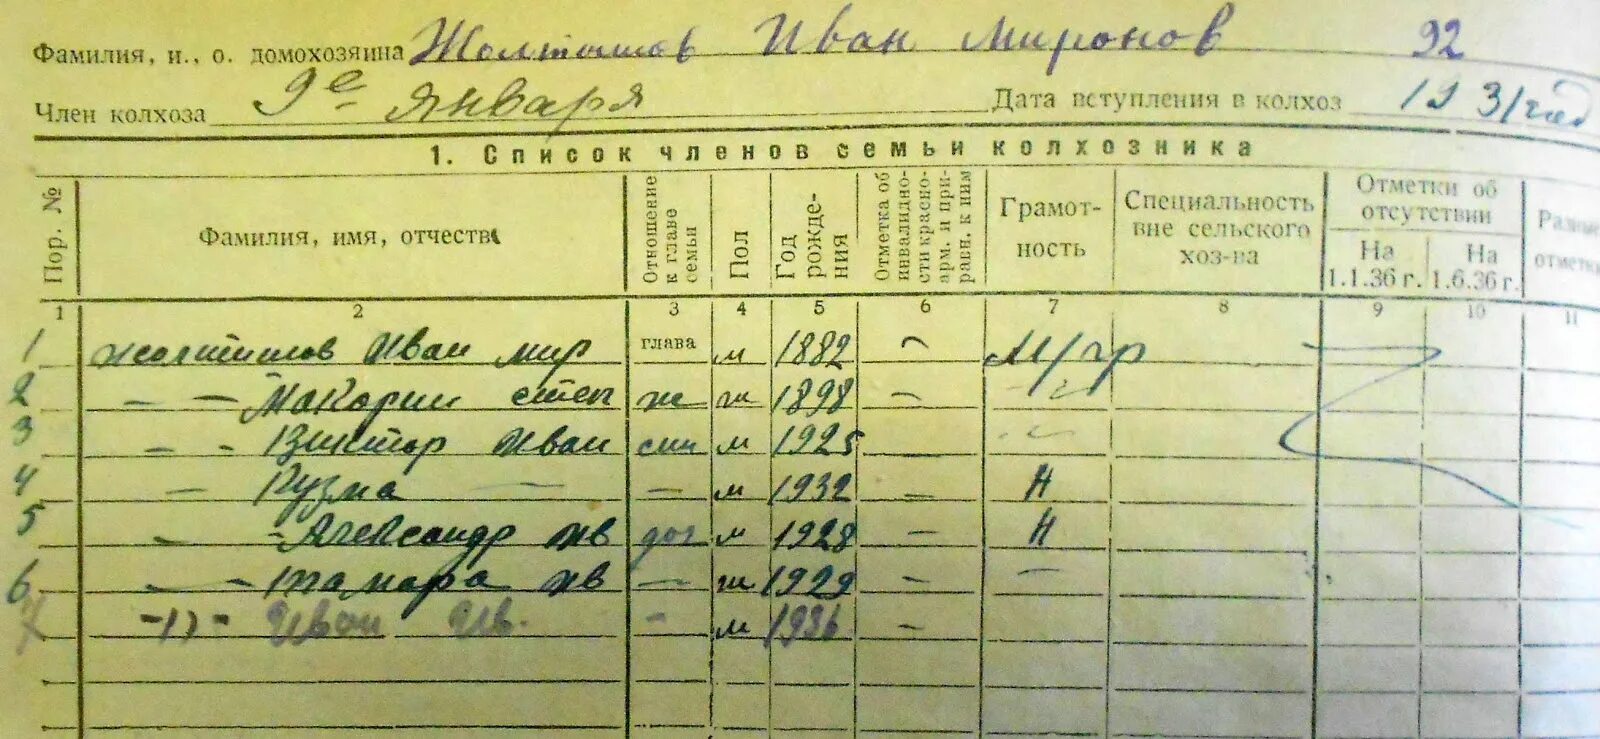 Фамилия, и., о. домохозяина Жолтышов Иван Миронов 92
Член колхоза 9е января Дата вступления в колхоз 1931 год
1. Список членов семьи колхозника
Пор. № Фамилия, имя, отчеств Отношение к главе семьи Пол Год рождения Отметка об инвалидности красноарм. и приравн. к ним Грамотность Специальность вне сельского хоз-ва Отметки об отсутствии На 1.1.36 г. На 1.6.36 г. Разные отметки
1 2 3 4 5 6 7 8 9 10 11
1 Жолтышов Иван мир глава м 1882 – М/гр
2 – – степ ж ж 1898 –
3 – – Виктор Иван сын м 1925
4 – Кузма – – м 1932 – Н
5 – – Александр Ив доч м 1928 – Н
6 – – Тамара Ив – ж 1929 – –
7 –〃– Иван Ив. – м 1936 –